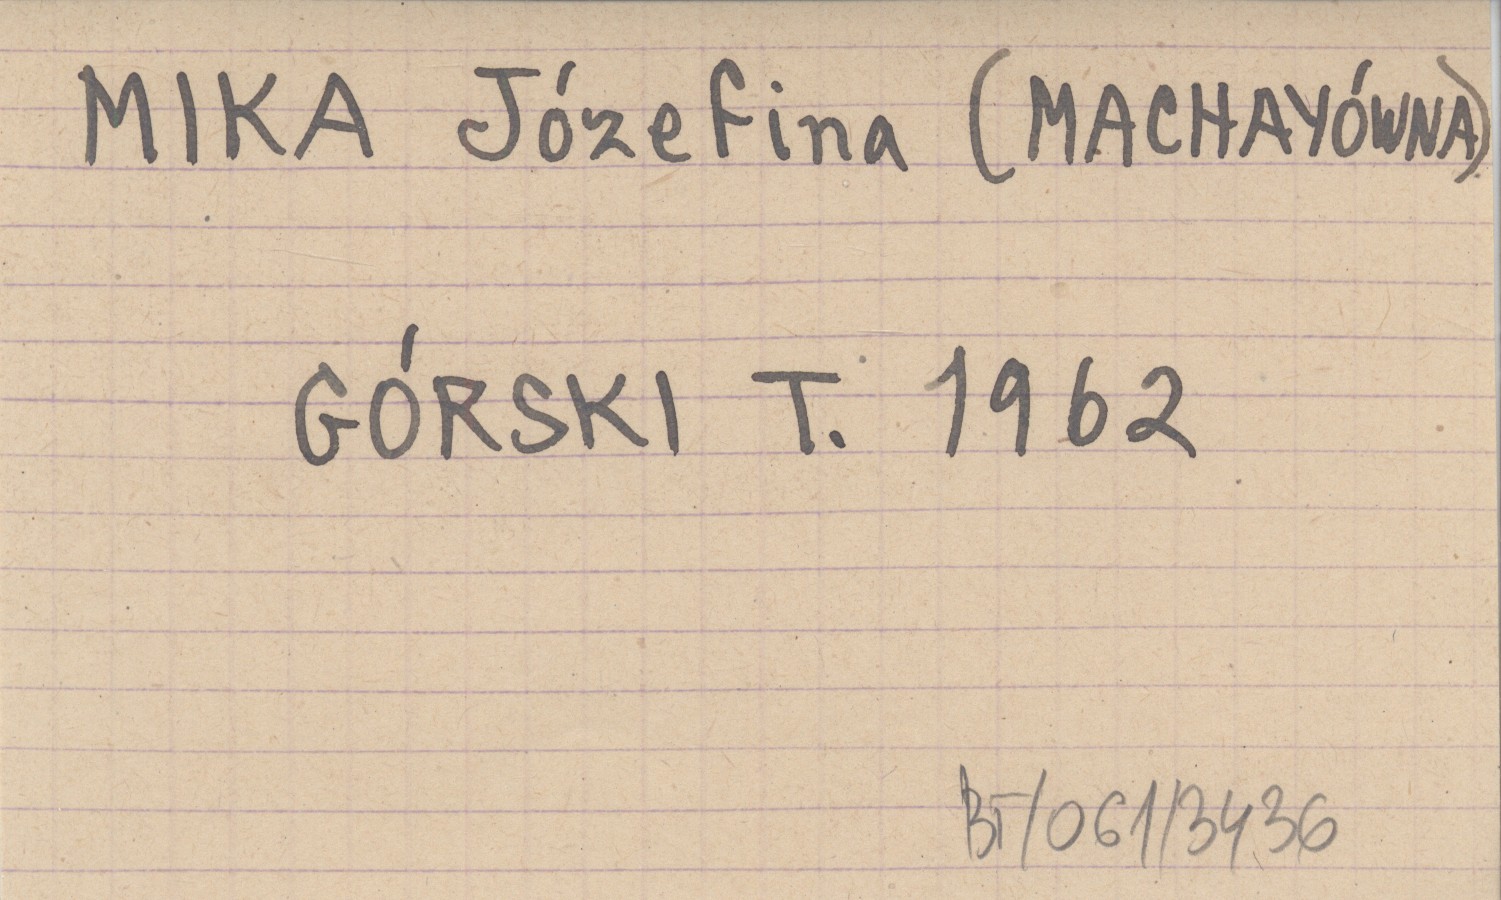 MIKA Józefina (MACHAYÓWNA)
GÓRSKI T. 1962
BT/061/3436